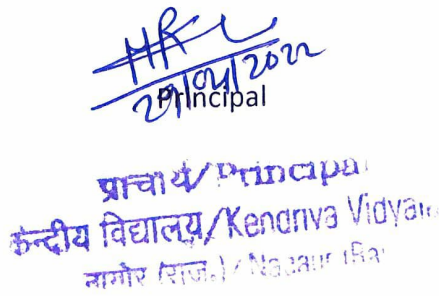 29/04/2022
Principal
प्राचार्य/Principal
केन्द्रीय विद्यालय/Kendriya
नागौर (राज.)/Nagaur